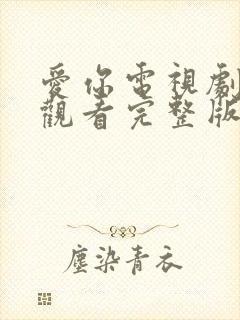 愛你電視劇
觀看完整版
塵染青衣